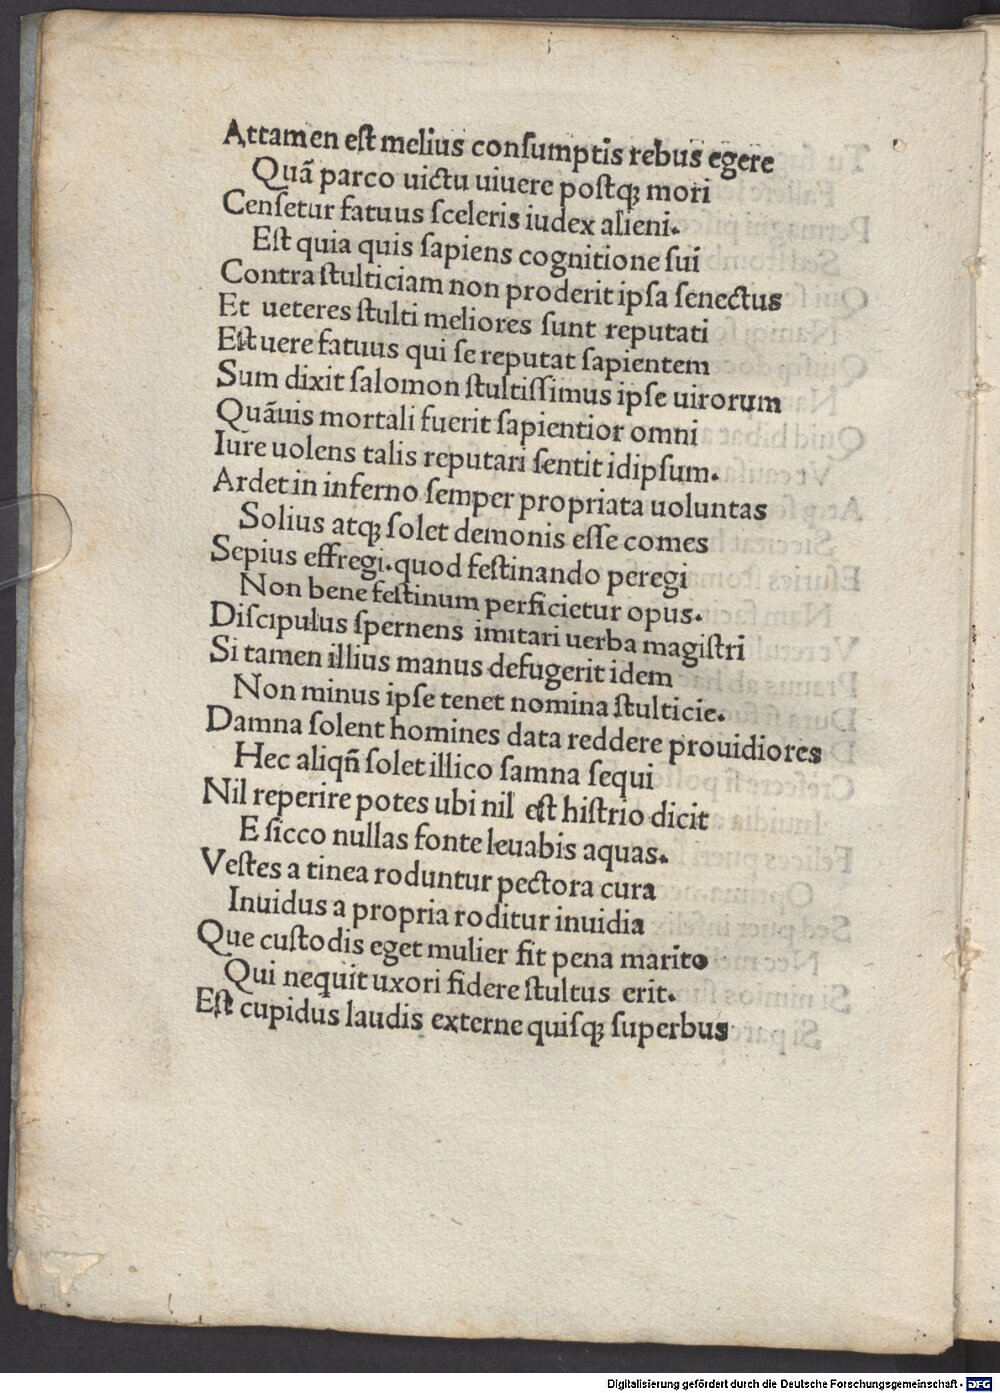 Attamen eſt melius conſumptis rebus egere
Quã parco uictu uiuere poſtqꝫ mori
Cenſetur fatuus ſceleris iudex alieni.
Eſt quia quis ſapiens cognitione ſui
Contra ſtulticiam non proderit ipſa ſenectus
Et ueteres ſtulti meliores ſunt reputati
Eſt uere fatuus qui ſe reputat ſapientem
Sum dixit ſalomon ſtultiſſimus ipſe uirorum
Quãuis mortali fuerit ſapientior omni
Iure uolens talis reputari ſentit idipſum.
Ardet in inferno ſemper propriata uoluntas
Solius atqꝫ ſolet demonis eſſe comes
Sepius effregi.quod feſtinando peregi
Non bene feſtinum perficietur opus.
Diſcipulus ſpernens imitari uerba magiſtri
Si tamen illius manus defugerit idem
Non minus ipſe tenet nomina ſtulticie.
Damna ſolent homines data reddere prouidiores
Hec aliqñ ſolet illico ſamna ſequi
Nil reperire potes ubi nil eſt hiſtrio dicit
E ſicco nullas fonte leuabis aquas.
Veſtes a tinea roduntur pectora cura
Inuidus a propria roditur inuidia
Que cuſtodis eget mulier fit pena marito
Qui nequit uxori fidere ſtultus erit.
Eſt cupidus laudis externe quiſqꝫ ſuperbus
Digitalisierung gefördert durch die Deutsche Forschungsgemeinschaft - DFG